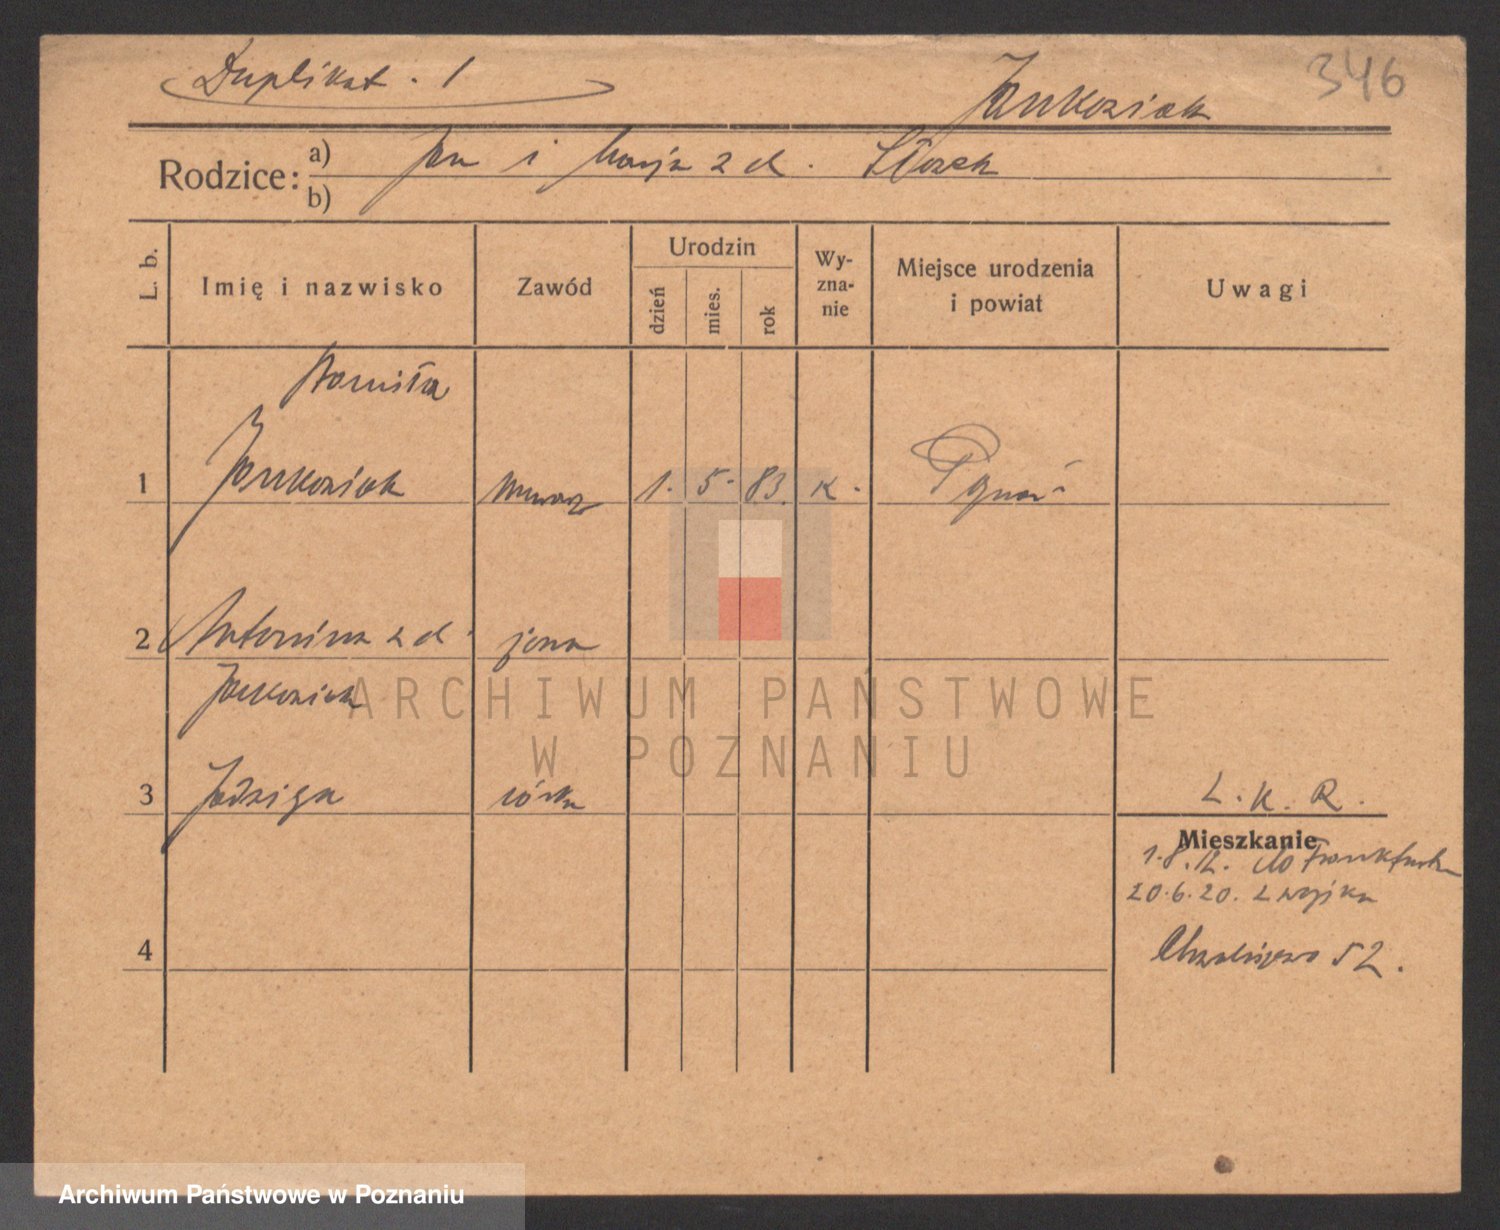 Duplikat. 1
346
Jankowiak
Rodzice:
a) Jan i Marja z d.
b)
L. b.
Imię i nazwisko
Zawód
Urodzin
dzień
mies.
rok
Wy-
zna-
nie
Miejsce urodzenia
i powiat
Uwagi
1
Jankowiak
murarz
1. 5. 83. K.
2
Antonina z d.
żona
Jankowiak
3
Jadwiga
córka
L. K. R.
Mieszkanie
1.8.12. do Frankfurtu
20.6.20. z wojska
4
52.
ARCHIWUM PAŃSTWOWE
W POZNANIU
Archiwum Państwowe w Poznaniu